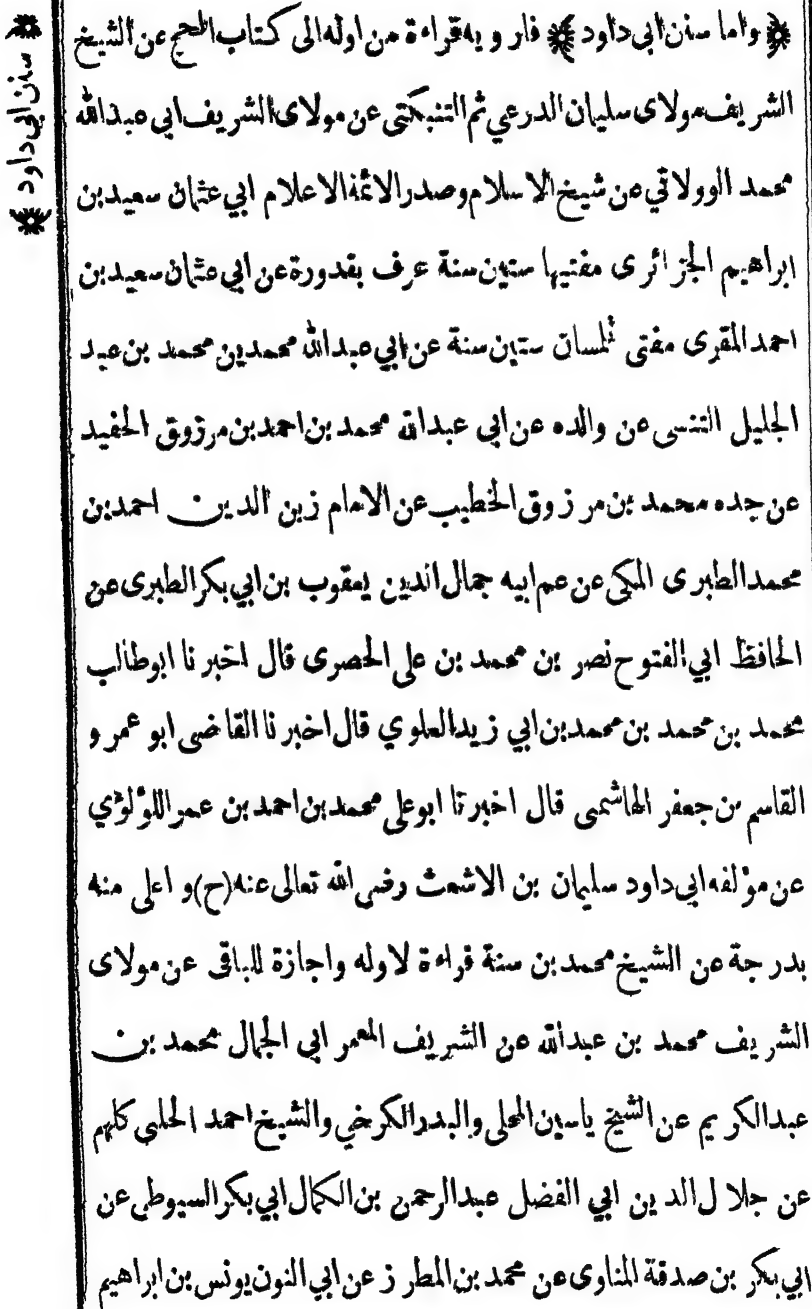 ﴿ واما سنن ابى داود ﴾ فارويه قراءة من اوله الى كتاب الحج عن الشيخ
الشريف مولاى سليمان الدرعي ثم التنبكتى عن مولاى الشريف ابى عبدالله
محمد الوولاتي عن شيخ الاسلام وصدر الائمة الاعلام ابي عثمان سعيد بن
ابراهيم الجزائرى مفتيها ستين سنة عرف بقدورة عن ابي عثمان سعيد بن
احمد المقرى مفتى تلمسان ستين سنة عن ابي عبدالله محمد بن محمد بن عبد
الجليل التنسى عن والده عن ابى عبدالله محمد بن احمد بن مرزوق الحفيد
عن جده محمد بن مرزوق الخطيب عن الامام زين الدين احمد بن
محمد الطبرى المكى عن عم ابيه جمال الدين يعقوب بن ابي بكر الطبرى عن
الحافظ ابي الفتوح نصر بن محمد بن على الحصرى قال اخبرنا ابوطالب
محمد بن محمد بن محمد بن ابي زيد العلوي قال اخبرنا القاضى ابو عمرو
القاسم بن جعفر الهاشمى قال اخبرنا ابو على محمد بن احمد بن عمر اللؤلؤي
عن مؤلفه ابى داود سليمان بن الاشعث رضى الله تعالى عنه (ح) و اعلى منه
بدرجة عن الشيخ محمد بن سنة قراءة لاوله واجازة للباقى عن مولاى
الشريف محمد بن عبدالله عن الشريف المعمر ابى الجمال محمد بن
عبدالكريم عن الشيخ ياسين المحلى والبدر الكرخي والشيخ احمد الحلبى كلهم
عن جلال الدين ابي الفضل عبدالرحمن بن الكمال ابي بكر السيوطى عن
ابي بكر بن صدقة المناوى عن محمد بن المطرز عن ابي النون يونس بن ابراهيم
﴿ سنن ابى داود ﴾